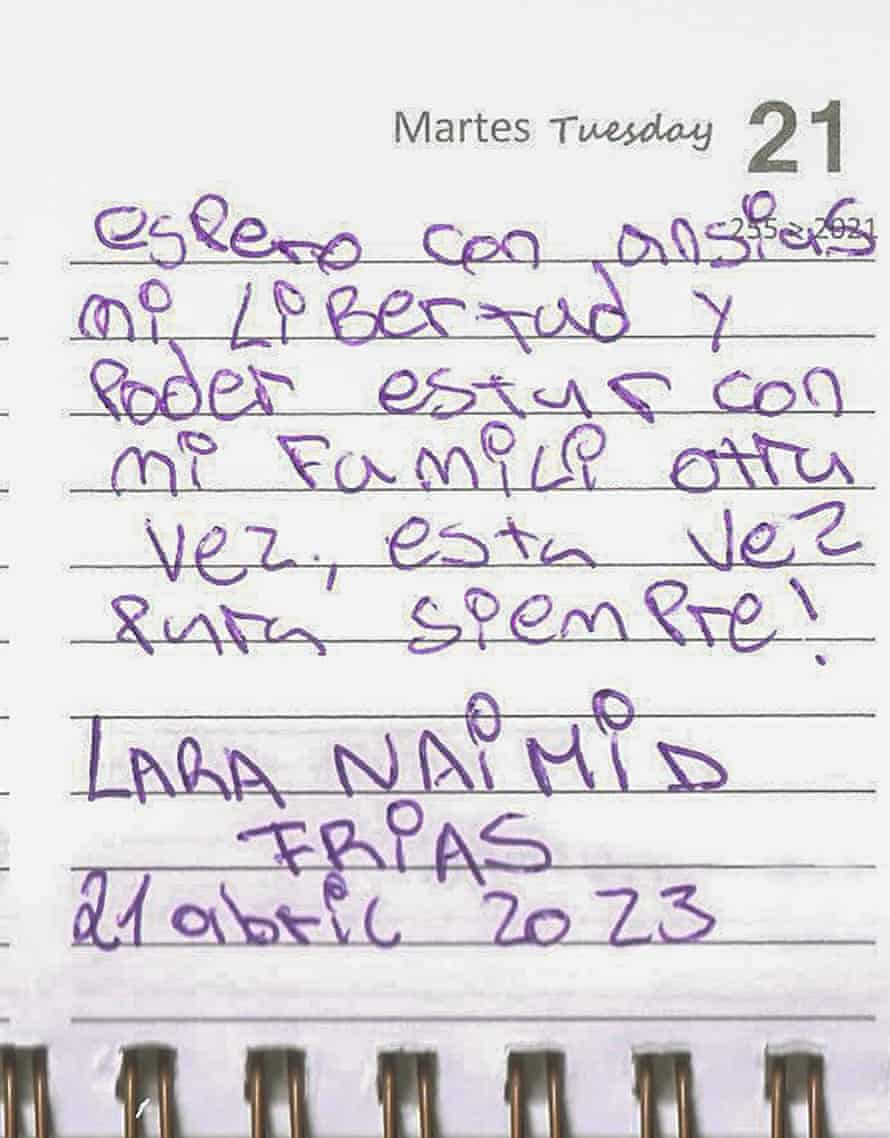 Martes Tuesday 21
255 - 2021
espero con ansias
mi Libertad y
Poder estar con
mi Famili otra
vez, esta vez
para siempre!
LARA NAiMiD
FRiAS
21 abril 2023